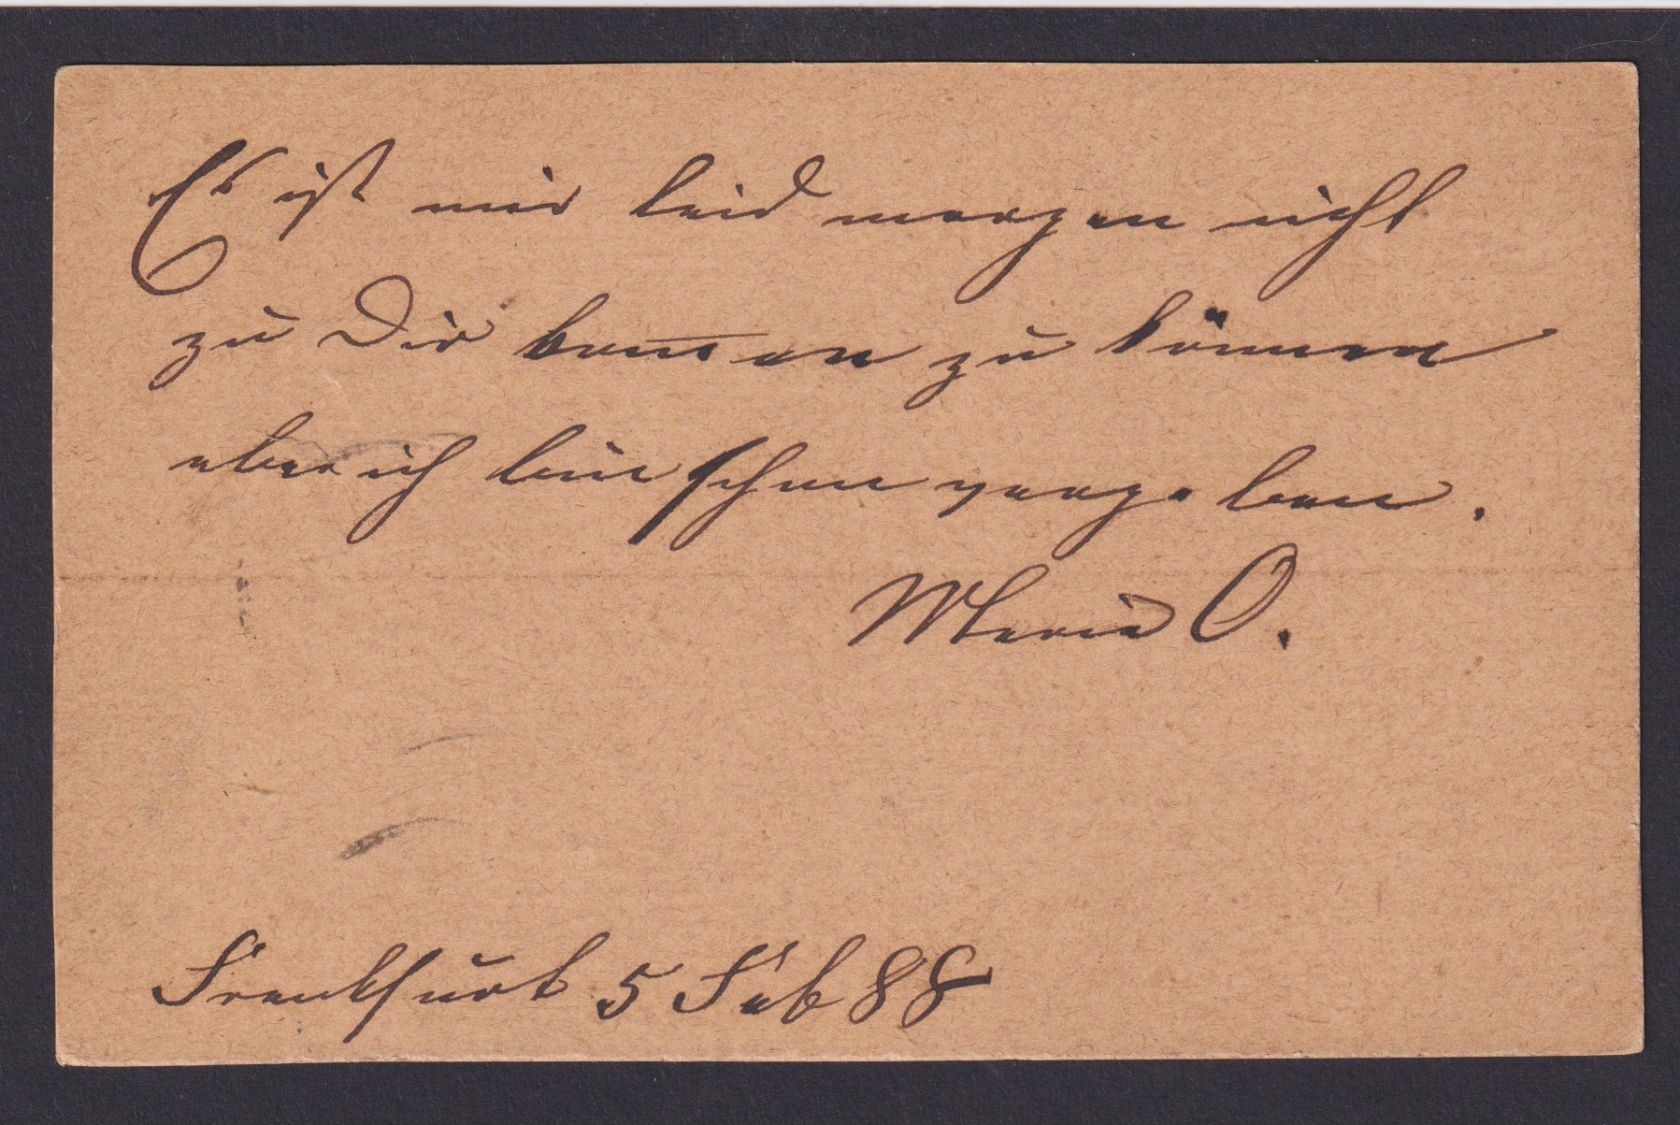 Es ist mir leid morgen nicht
zu Dir kom̅en zu können
aber ich bin schon vergeben.
Marie O.
Frankfurt 5 Feb 88